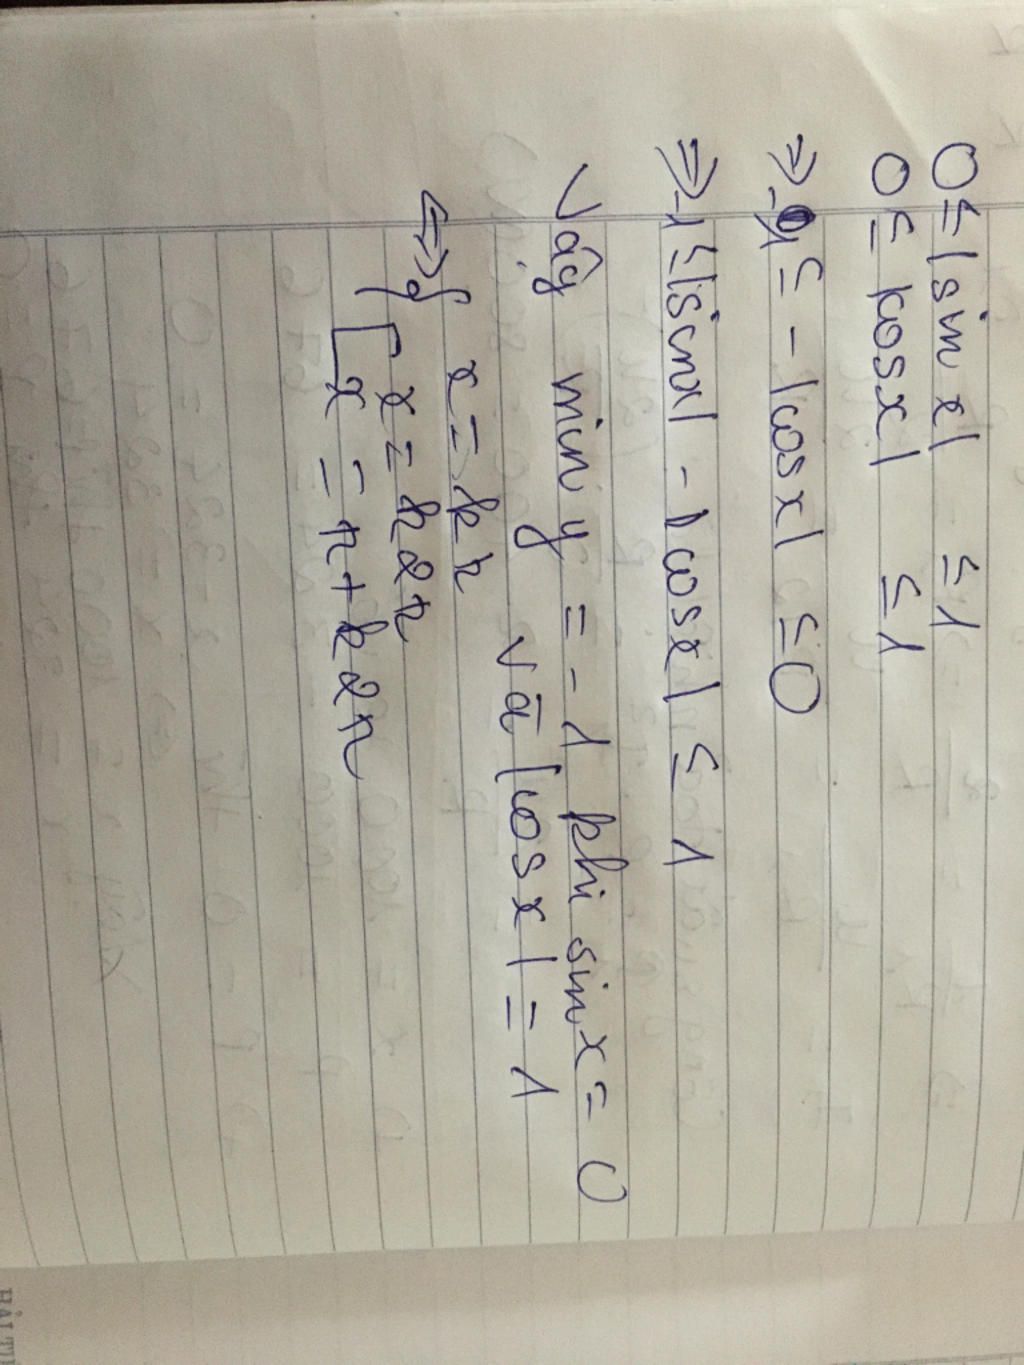 0 ≤ |sin x| ≤ 1
0 ≤ |cos x| ≤ 1
⇒ -1 ≤ - |cos x| ≤ 0
⇒ -1 ≤ |sin x| - |cos x| ≤ 1
Vậy min y = -1 khi sin x = 0
và |cos x| = 1
⇔ { x = kπ
[ x = k2π
x = π + k2π